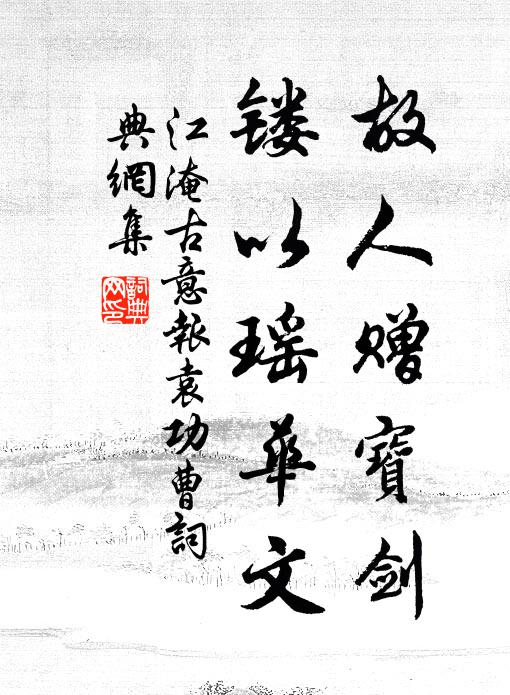 故人赠寶剑
镂以瑶華文
江淹古意報袁功曹詞
典網集
詞典
网印